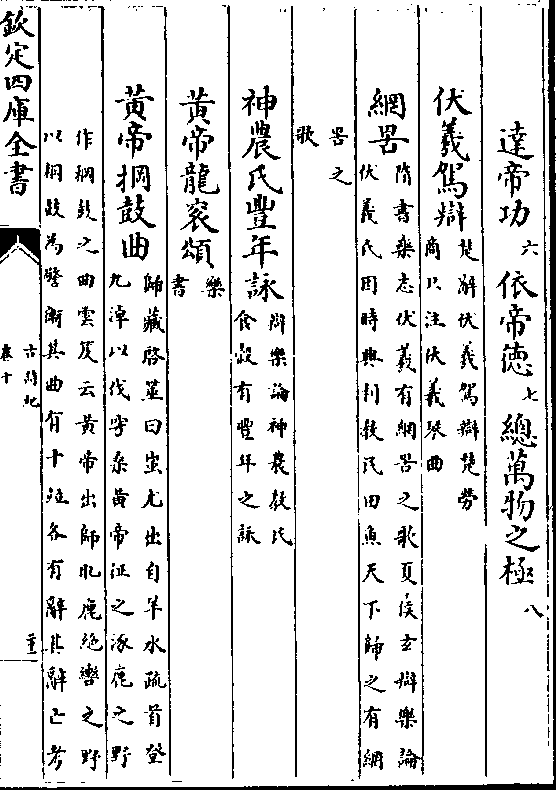 達帝功六 依帝德七 總萬物之極八
伏羲駕辯 楚辭伏羲駕辯楚勞
商只注伏羲琴曲
網罟 隋書樂志伏羲有網罟之歌夏侯玄辯樂論
伏羲氏因時興利教民田魚天下歸之有網
罟之
歌
神農氏豐年詠 辯樂論神農教民
食穀有豐年之詠
黄帝龍衮頌 樂
書
黄帝棡鼓曲 歸藏啓筮曰蚩尤出自羊水疏首登
九淖以伐空桑黄帝征之涿鹿之野
作棡鼓之曲雲笈云黄帝出師涿鹿絶轡之野
以棡鼓為警衛其曲有十竝各有辭其辭亡考
欽定四庫全書
古詩紀
卷十